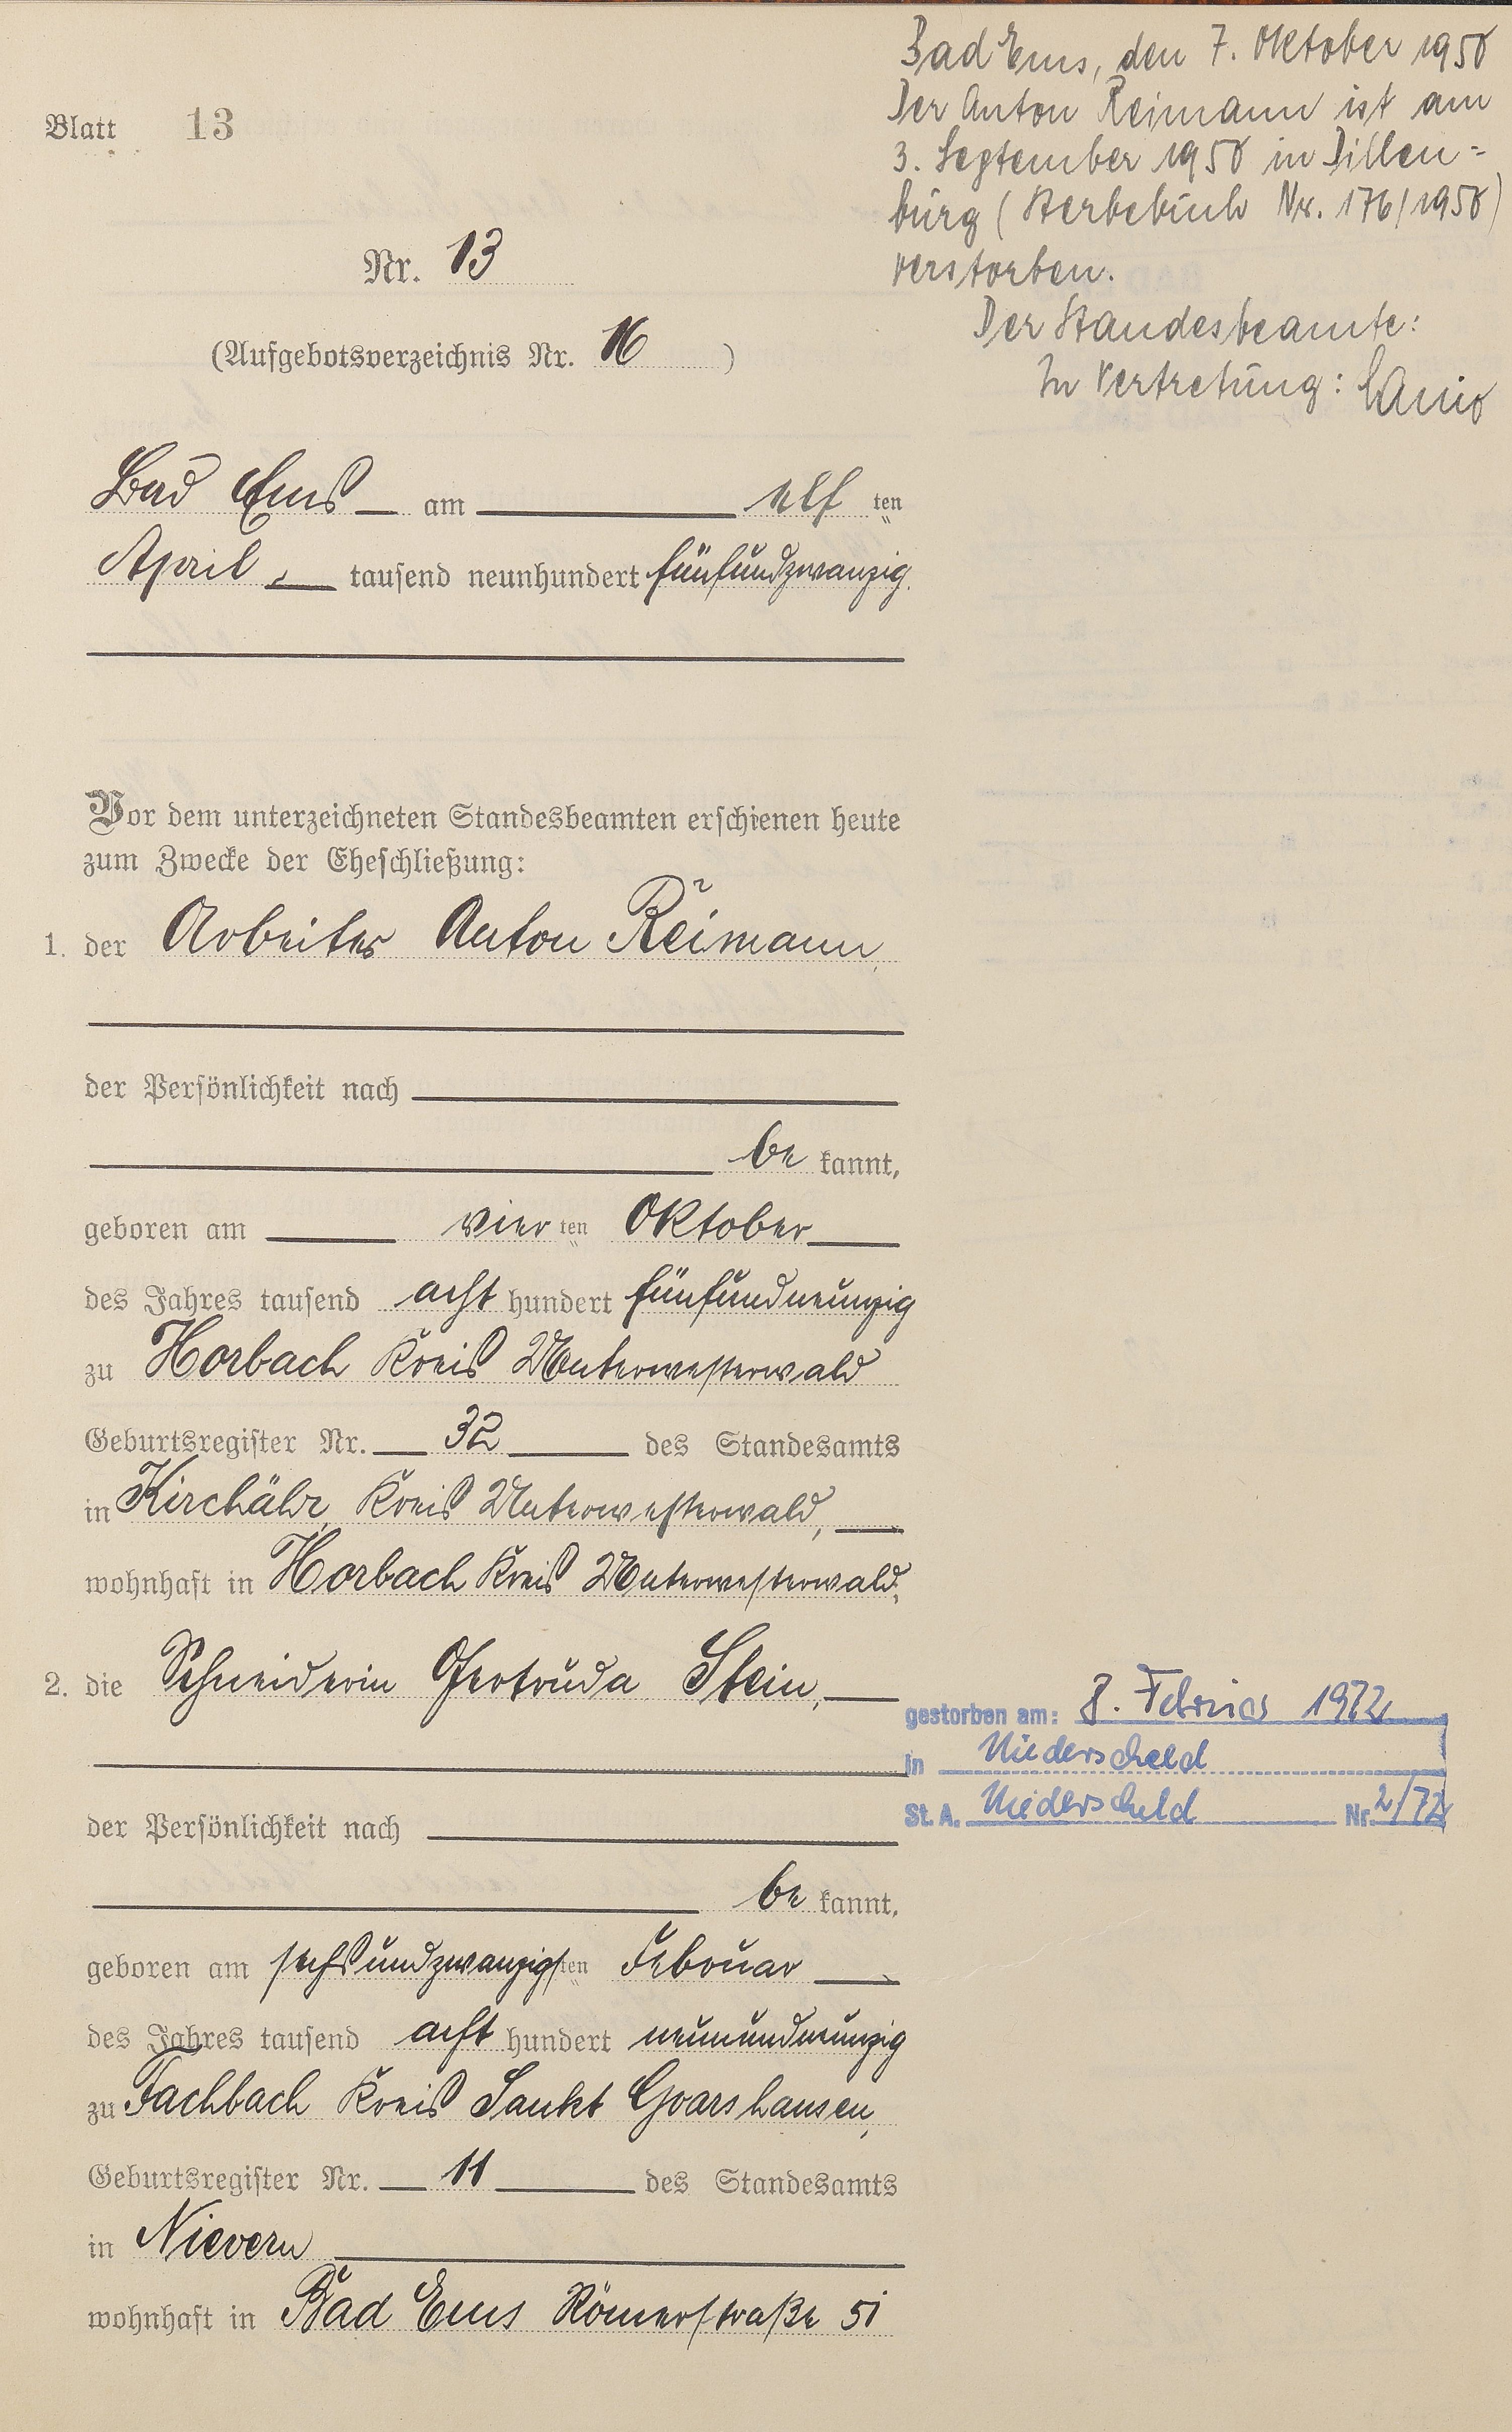 Blatt 13
Bad Ems, den 7. Oktober 1958
Der Anton Reimann ist am
3. September 1958 in Dillen=
burg (Sterbebuch Nr. 176/1958)
verstorben.
Der Standesbeamte:
In Vertretung:
Nr. 13
(Aufgebotsverzeichnis Nr. 16)
Bad Ems am elf ten
April, tausend neunhundert fünfundzwanzig.
Vor dem unterzeichneten Standesbeamten erschienen heute
zum Zwecke der Eheschließung:
1. der Arbeiter Anton Reimann,
der Persönlichkeit nach
be kannt,
geboren am vier ten Oktober
des Jahres tausend acht hundert fünfundneunzig
zu Horbach Kreis Unterwesterwald
Geburtsregister Nr. 32 des Standesamts
in Kirchähr, Kreis Unterwesterwald,
wohnhaft in Horbach Kreis Unterwesterwald,
2. die Schneiderin Gertruda Stein,
der Persönlichkeit nach
be kannt,
geboren am sechsundzwanzigs ten Februar
des Jahres tausend acht hundert neunundneunzig
zu Fachbach Kreis Sankt Goarshausen,
Geburtsregister Nr. 11 des Standesamts
in Nievern
wohnhaft in Bad Ems Römerstraße 51
gestorben am: 8. Februar 1972
in Niederscheld
St. A. Niederscheld Nr. 2/72